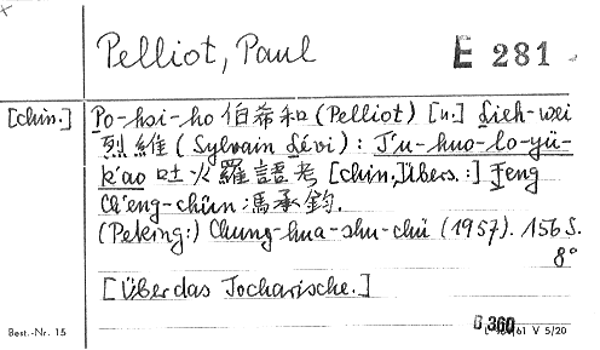 Pelliot, Paul E 281
[chin.] Po-hsi-ho 伯希和 (Pelliot) [u.] Lieh-wei
烈維 (Sylvain Lévi): T'u-huo-lo-yü-
k'ao 吐火羅語考 [chin. Übers.:] Feng
Ch'eng-chün 馮承鈞.
(Peking:) Chung-hua-shu-chü (1957). 156 S.
8°
[Über das Tocharische.]
Best.-Nr. 15 61 V 5/20